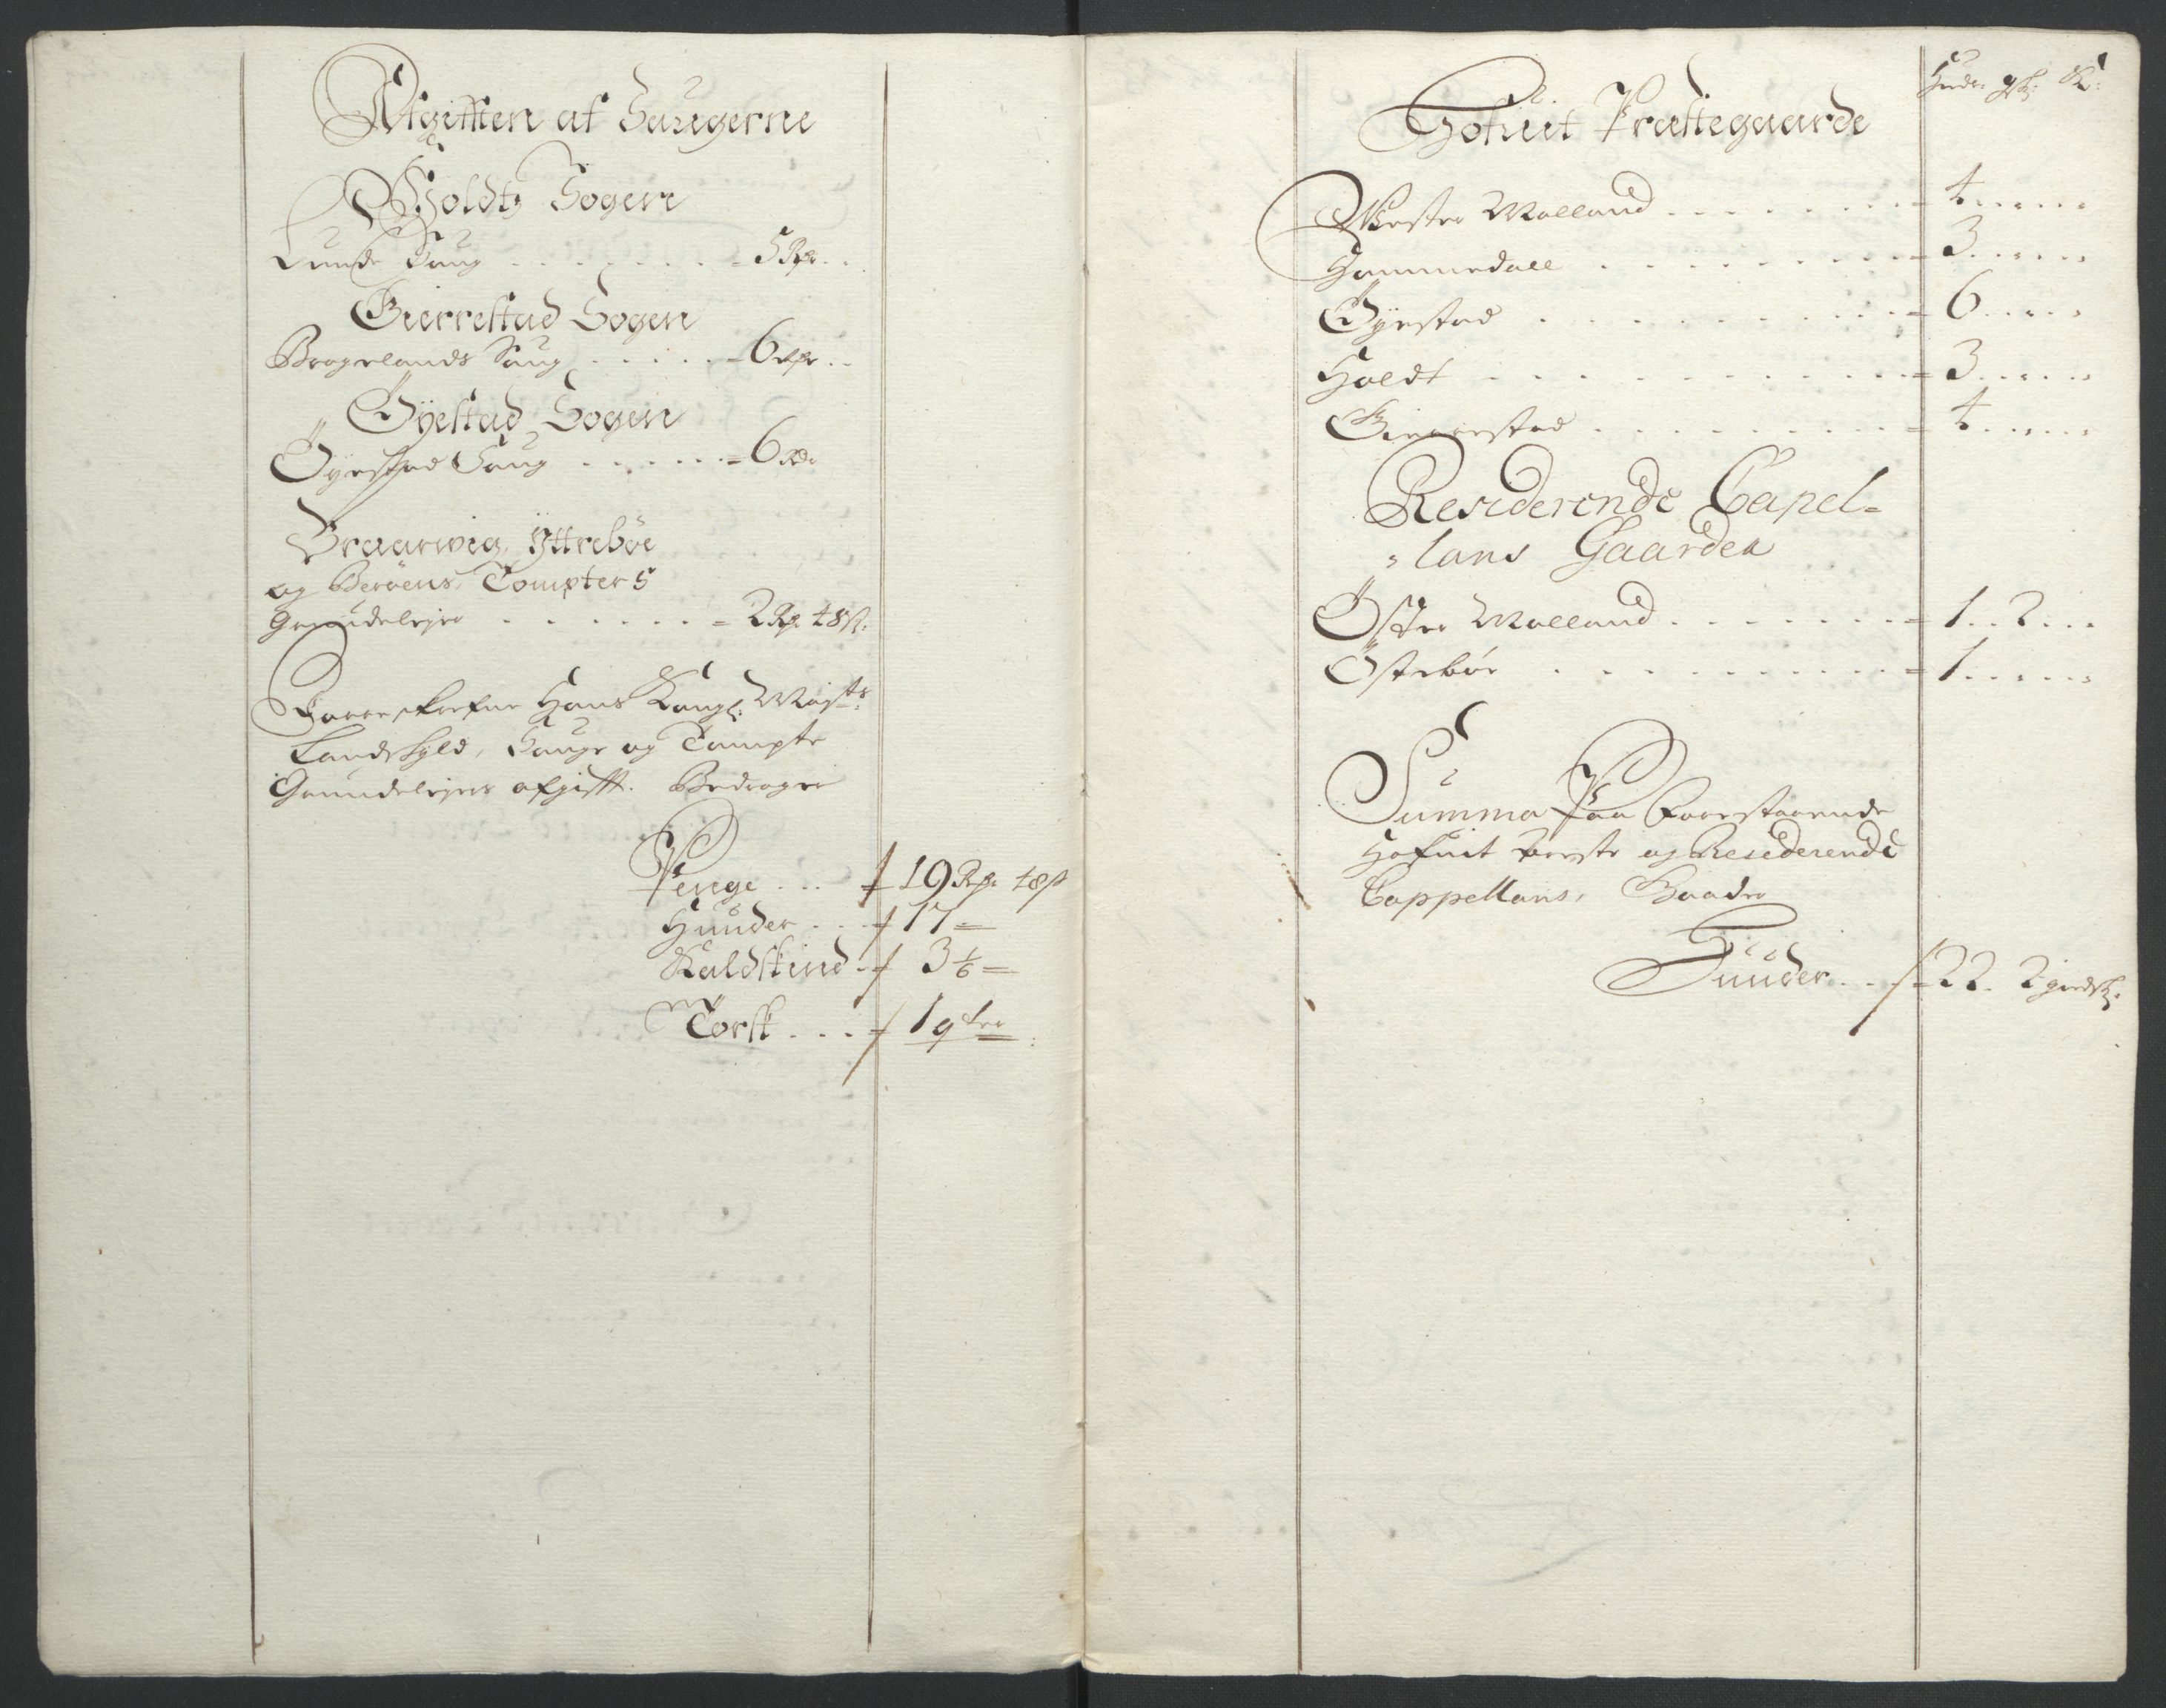 Afgifften af Saugerne
Holdtz Sogen
Lunde Saug - 5 Rdr
Gierrestad Sogen
Brogelands Saug - 6 Rdr
Öyestad Sogen
Öyestad Saug - 6 Rdr
Braarwig, Yttrebøe
og Berøens Tompters
Grundeleje - 2 Rdr 48 ß.
Forreskrefne Hans Kongl: Maÿts
Landskyld, Sauge og Tompte
Grundelejes afgifft. Bedrager
Penge - 19 Rdr 48 ß
Huuder - 17 =
Kaldskind - 3 1/6 =
Torsk - 1 qter
Huder gsk: Sk:
Hofuit Præstegaarde
Wester Molland - 4
Hommedall - 3
Öyestad - 6
Holdt - 3
Gierrestad - 4
Residerende Capel=
=lans Gaarder
Öster Molland - 1 . 2
Östebör - 1
Summa Paa Forestaaende
Hofuit Preste og Residerende
Cappellans, Gaarder
Huuder - 22. 2 giedsk: